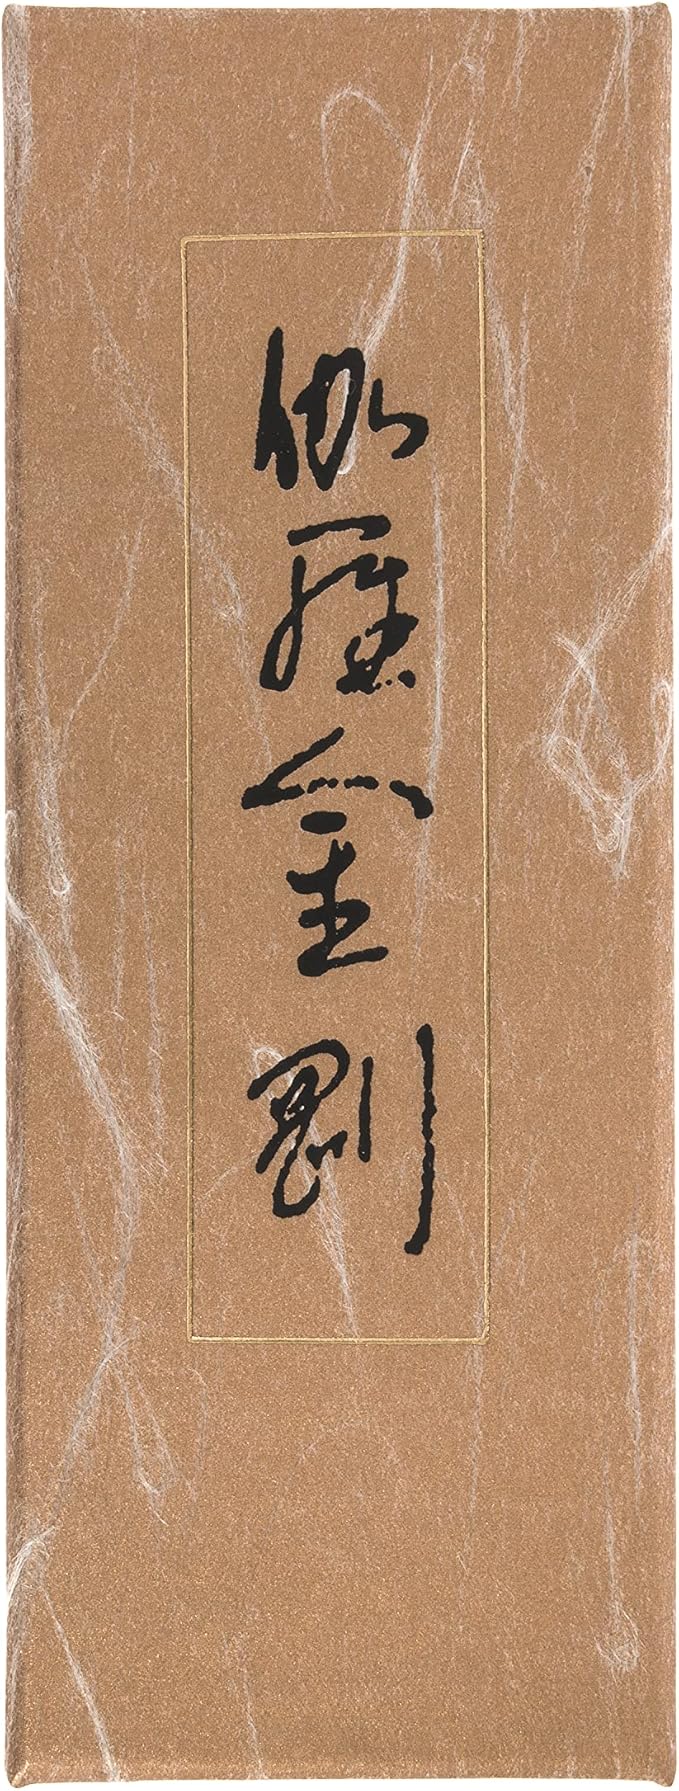 伽羅金剛